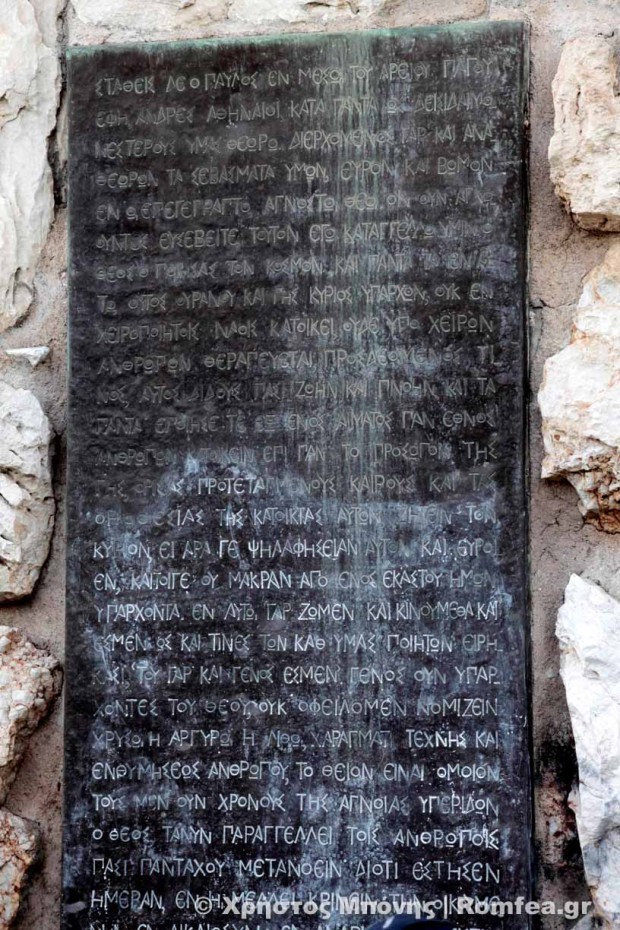 ΣΤΑΘΕΙΣ ΔΕ Ο ΠΑΥΛΟΣ ΕΝ ΜΕΣΩ ΤΟΥ ΑΡΕΙΟΥ ΠΑΓΟΥ
ΕΦΗ ΑΝΔΡΕΣ ΑΘΗΝΑΙΟΙ ΚΑΤΑ ΠΑΝΤΑ ΩΣ ΔΕΙΣΙΔΑΙΜΟ
ΝΕΣΤΕΡΟΥΣ ΥΜΑΣ ΘΕΩΡΩ. ΔΙΕΡΧΟΜΕΝΟΣ ΓΑΡ ΚΑΙ ΑΝΑ
ΘΕΩΡΩΝ ΤΑ ΣΕΒΑΣΜΑΤΑ ΥΜΩΝ, ΕΥΡΟΝ ΚΑΙ ΒΩΜΟΝ
ΕΝ Ω ΕΠΕΓΕΓΡΑΠΤΟ, ΑΓΝΩΣΤΩ ΘΕΩ. ΟΝ ΟΥΝ ΑΓΝΟ
ΟΥΝΤΕΣ ΕΥΣΕΒΕΙΤΕ ΤΟΥΤΟΝ ΕΓΩ ΚΑΤΑΓΓΕΛΩ ΥΜΙΝ Ο
ΘΕΟΣ Ο ΠΟΙΗΣΑΣ ΤΟΝ ΚΟΣΜΟΝ ΚΑΙ ΠΑΝΤΑ ΤΑ ΕΝ ΑΥ
ΤΩ ΟΥΤΟΣ ΟΥΡΑΝΟΥ ΚΑΙ ΓΗΣ ΚΥΡΙΟΣ ΥΠΑΡΧΩΝ, ΟΥΚ ΕΝ
ΧΕΙΡΟΠΟΙΗΤΟΙΣ ΝΑΟΙΣ ΚΑΤΟΙΚΕΙ, ΟΥΔΕ ΥΠΟ ΧΕΙΡΩΝ
ΑΝΘΡΩΠΩΝ ΘΕΡΑΠΕΥΕΤΑΙ ΠΡΟΣΔΕΟΜΕΝΟΣ ΤΙ
ΝΟΣ, ΑΥΤΟΣ ΔΙΔΟΥΣ ΠΑΣΙ ΖΩΗΝ ΚΑΙ ΠΝΟΗΝ ΚΑΙ ΤΑ
ΠΑΝΤΑ ΕΠΟΙΗΣΕ ΤΕ ΕΞ ΕΝΟΣ ΑΙΜΑΤΟΣ ΠΑΝ ΕΘΝΟΣ
ΑΝΘΡΩΠΩΝ ΚΑΤΟΙΚΕΙΝ ΕΠΙ ΠΑΝ ΤΟ ΠΡΟΣΩΠΟΝ ΤΗΣ
ΓΗΣ ΟΡΙΣΑΣ ΠΡΟΤΕΤΑΓΜΕΝΟΥΣ ΚΑΙΡΟΥΣ ΚΑΙ ΤΑΣ
ΟΡΟΘΕΣΙΑΣ ΤΗΣ ΚΑΤΟΙΚΙΑΣ ΑΥΤΩΝ ΖΗΤΕΙΝ ΤΟΝ
ΚΥΡΙΟΝ, ΕΙ ΑΡΑ ΓΕ ΨΗΛΑΦΗΣΕΙΑΝ ΑΥΤΟΝ ΚΑΙ ΕΥΡΟΙ
ΕΝ, ΚΑΙΤΟΙΓΕ ΟΥ ΜΑΚΡΑΝ ΑΠΟ ΕΝΟΣ ΕΚΑΣΤΟΥ ΗΜΩΝ
ΥΠΑΡΧΟΝΤΑ. ΕΝ ΑΥΤΩ, ΓΑΡ ΖΩΜΕΝ ΚΑΙ ΚΙΝΟΥΜΕΘΑ ΚΑΙ
ΕΣΜΕΝ ΩΣ ΚΑΙ ΤΙΝΕΣ ΤΩΝ ΚΑΘ ΥΜΑΣ ΠΟΙΗΤΩΝ ΕΙΡΗ
ΚΑΣΙ, ΤΟΥ ΓΑΡ ΚΑΙ ΓΕΝΟΣ ΕΣΜΕΝ. ΓΕΝΟΣ ΟΥΝ ΥΠΑΡ
ΧΟΝΤΕΣ ΤΟΥ ΘΕΟΥ, ΟΥΚ ΟΦΕΙΛΟΜΕΝ ΝΟΜΙΖΕΙΝ
ΧΡΥΣΩ, Η ΑΡΓΥΡΩ Η ΛΙΘΩ, ΧΑΡΑΓΜΑΤΙ ΤΕΧΝΗΣ ΚΑΙ
ΕΝΘΥΜΗΣΕΩΣ ΑΝΘΡΩΠΟΥ, ΤΟ ΘΕΙΟΝ ΕΙΝΑΙ ΟΜΟΙΟΝ
ΤΟΥΣ ΜΕΝ ΟΥΝ ΧΡΟΝΟΥΣ ΤΗΣ ΑΓΝΟΙΑΣ ΥΠΕΡΙΔΩΝ
Ο ΘΕΟΣ ΤΑΝΥΝ ΠΑΡΑΓΓΕΛΛΕΙ ΤΟΙΣ ΑΝΘΡΩΠΟΙΣ
ΠΑΣΙ ΠΑΝΤΑΧΟΥ ΜΕΤΑΝΟΕΙΝ ΔΙΟΤΙ ΕΣΤΗΣΕΝ
ΗΜΕΡΑΝ, ΕΝ Η ΜΕΛΛΕΙ ΚΡΙΝΕΙΝ ΤΗΝ ΟΙΚΟΥΜΕ
© Χρήστος Μπόνης | Romfea.gr